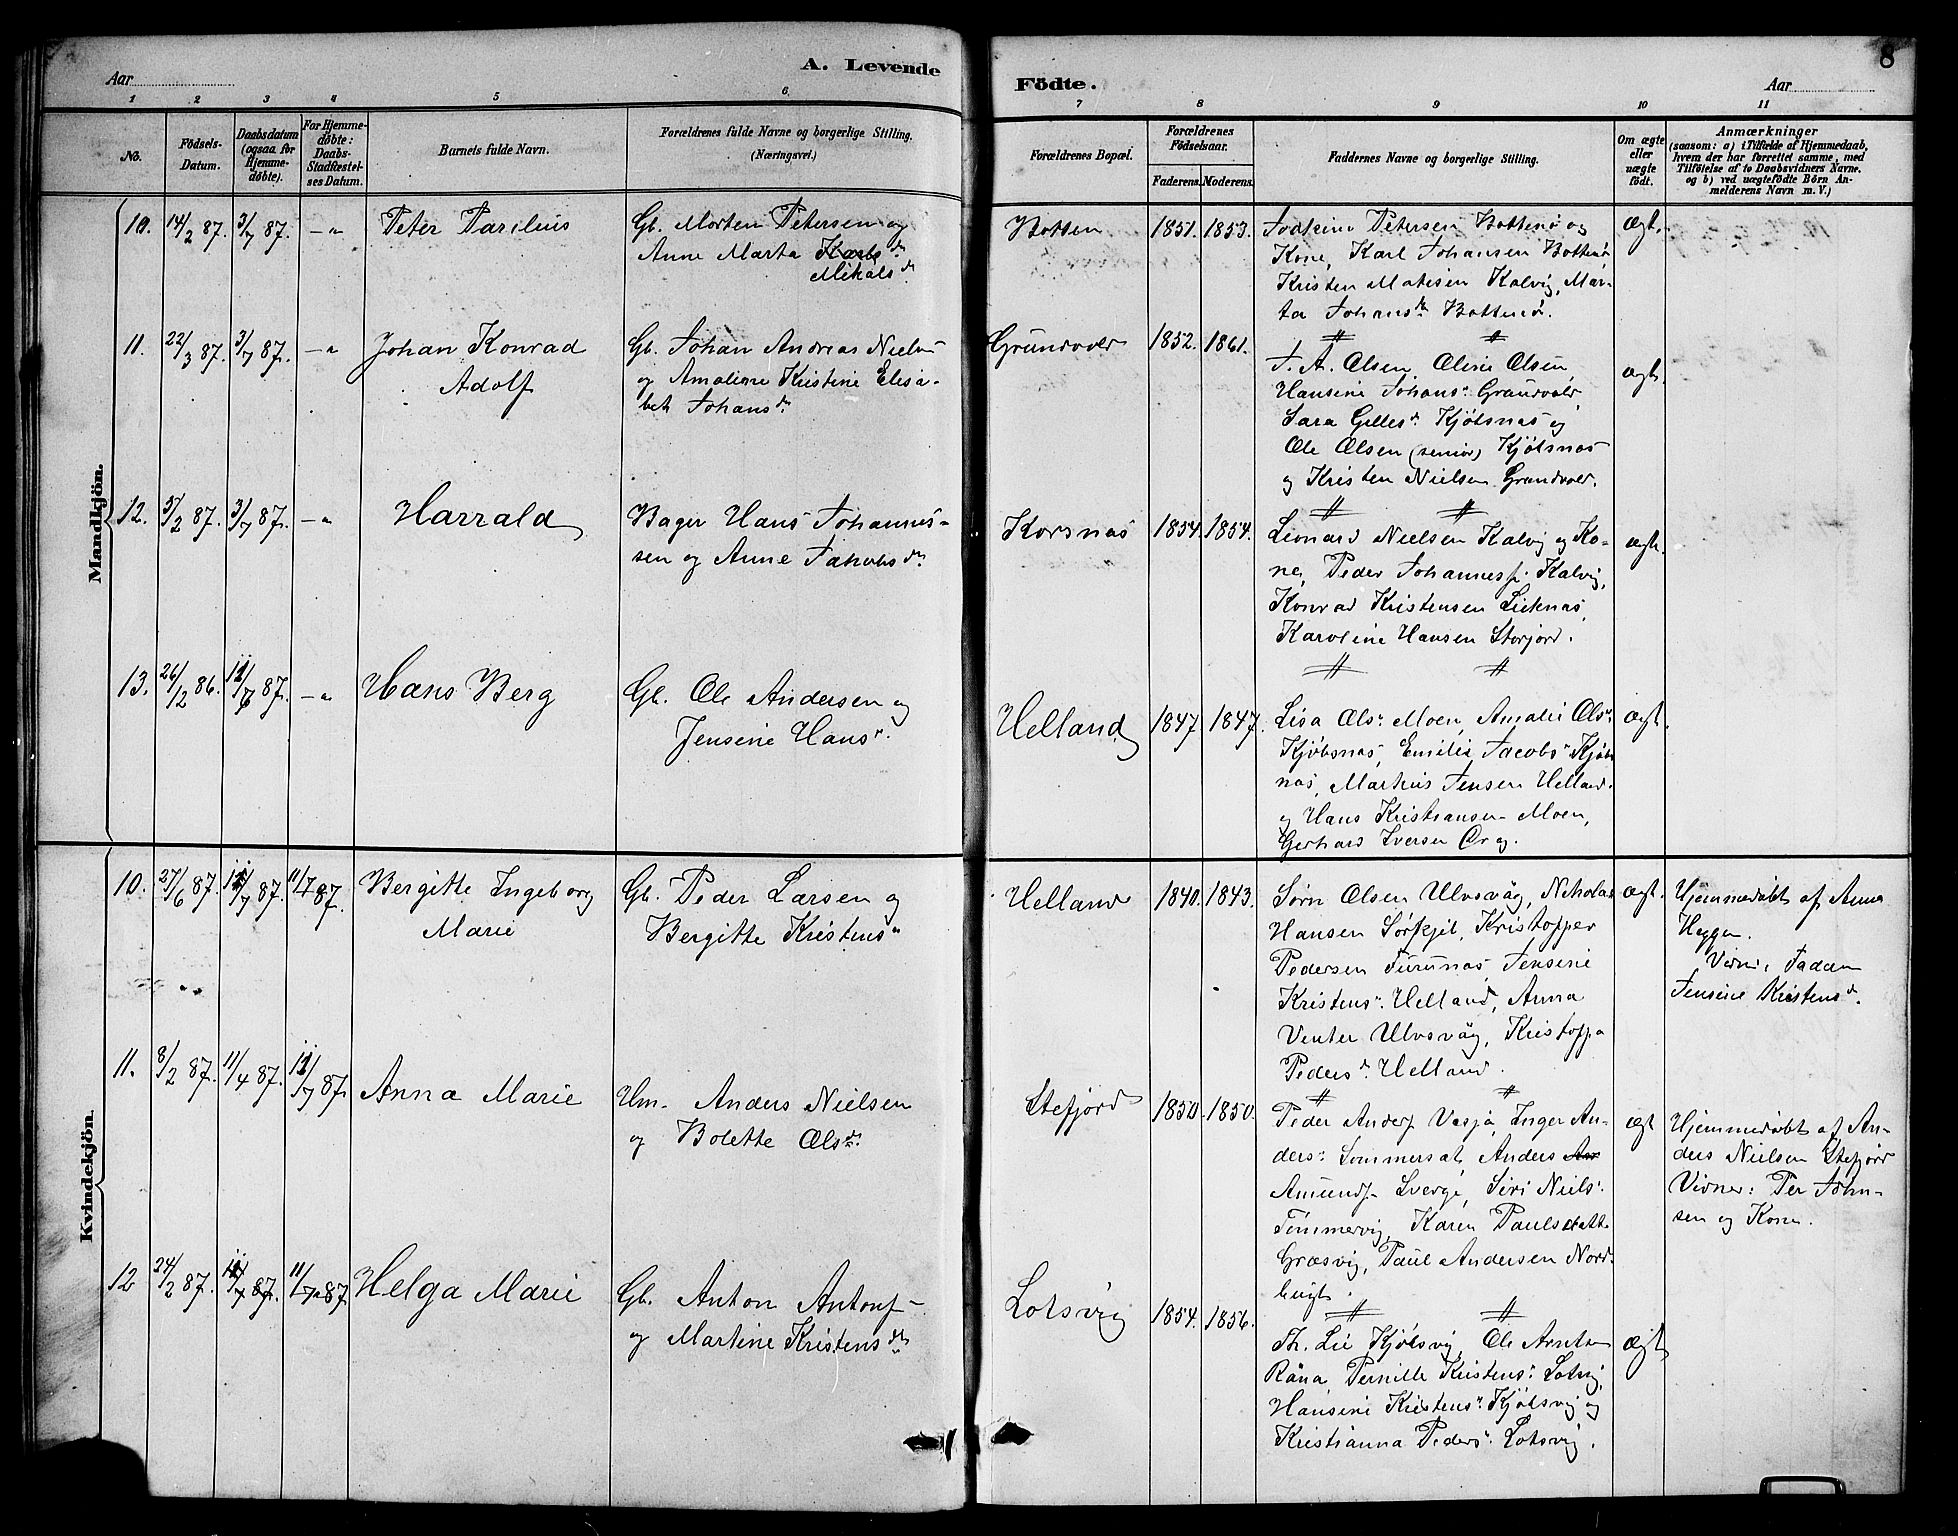 8
Aar
A. Levende
Födte.
Aar
1 2 3 4 5 6 7 8 9 10 11
No.
Födsels-
Datum.
Daabsdatum
(ogsaa for
Hjemme-
døbte).
For Hjemme-
døbte:
Daabs-
Stadfæstel-
ses Datum.
Barnets fulde Navn.
Forældrenes fulde Navne og borgerlige Stilling.
(Næringsvei.)
Forældrenes Bopæl.
Forældrenes
Fødselsaar.
Faderens. Moderens.
Faddernes Navne og borgerlige Stilling.
Om ægte
eller
uægte
født.
Anmærkninger
(saasom: a) i Tilfælde af Hjemmedaab,
hvem der har forrettet samme, med
Tilføielse af to Daabsvidners Navne.
og b) ved uægtefødte Börn An-
melderens Navn m. V.)
Mandkjön.
10. 14/2 87. 3/7 87. -"
Peter Parelius
Gb. Morten Petersen og
Anne Marta Karls dr
Mikals dr
Botten
1851. 1853.
Petersen Bottenø og
Kone, Karl Johansen Bottenø
Kristen Matisen Kalvig, Mar-
ta Johans dr Bottenø.
Ægt.
11. 22/3 87. 3/7 87. -"
Johan Konrad
Adolf
Gb. Johan Andreas Nielsen
og Amaline Kristine Elisa-
bet Johans dr
Grundvold
1852. 1861.
J. A. Olsen, Oline Olsen,
Hansine Johans" Grundvold
Sara Gilles" Kjøbsnas og
Ole Olsen (senior) Kjøbsnas
og Kristen Nielsen Grundvold.
ægt.
12. 3/2 87. 3/7 87. -"
Harrald
Bager Hans Johannes-
sen og Anne Jakobs dr
Korsnas
1854. 1854.
Leonard Nielsen Kalvig og Ko-
ne, Peder Johannesf. Kalvig,
Konrad Kristensen Lieknas,
Karoline Hansen Storjord.
ægt.
13. 26/12 86. 11/7 87. -"
Hans Berg
Gb. Ole Andersen og
Jensine Hans"
Helland
1847. 1847.
Lisa Ols" Moen, Amalie Ols"
Kjøbsnas, Emilie Jacobs" Kjøbs
nas, Markus Jensen Helland
og Hans Kristiansen Moen,
Gerhard Iversen Drag.
Ægt
Kvindekjön.
10. 27/6 87. 11/7 87. 11/7 87.
Bergitte Ingeborg
Marie
Gb. Peder Larsen og
Bergitte Kristens"
Helland
1840. 1843.
Sørn Olsen Ulvsvåg, Nikolai
Hansen Sørkjil, Kristoffer
Pedersen Furunas, Jensine
Kristens" Helland, Anna
Venter Ulvsvåg, Kristoffa
Peders dr Helland.
ægt.
Hjemmedøbt af Anna
Heggen.
Vidne: Faderen
Jensine Kristens dr.
11. 8/2 87. 11/4 87. 11/7 87.
Anna Marie
Um. Anders Nielsen
og Bolette Ols dr
Stefjord
1850. 1850.
Peder Andersf Vasja, Inger An-
ders" Sommerset, Anders An
Amundf. Sverge, Siri Niels"
Tømmervig, Karen Paulsdatt
Græsvig, Paul Andersen Nord
bugt.
ægt
Hjemmedøbt af An-
ders Nielsen Stefjord
Vidner: Per John-
sen og Kone.
12 24/2 87. 11/7 87. 11/7 87.
Helga Marie
Gb. Anton Antonf-
og Martine Kristens dtr
Lotsvig
1854. 1856.
Th. Lie Kjøbsvig, Ole Arntsen
Råna Pernille Kristens" Lotsvig,
Hansine Kristens" Kjøbsvig og
Kristianna Peders" Lotsvig.
ægt